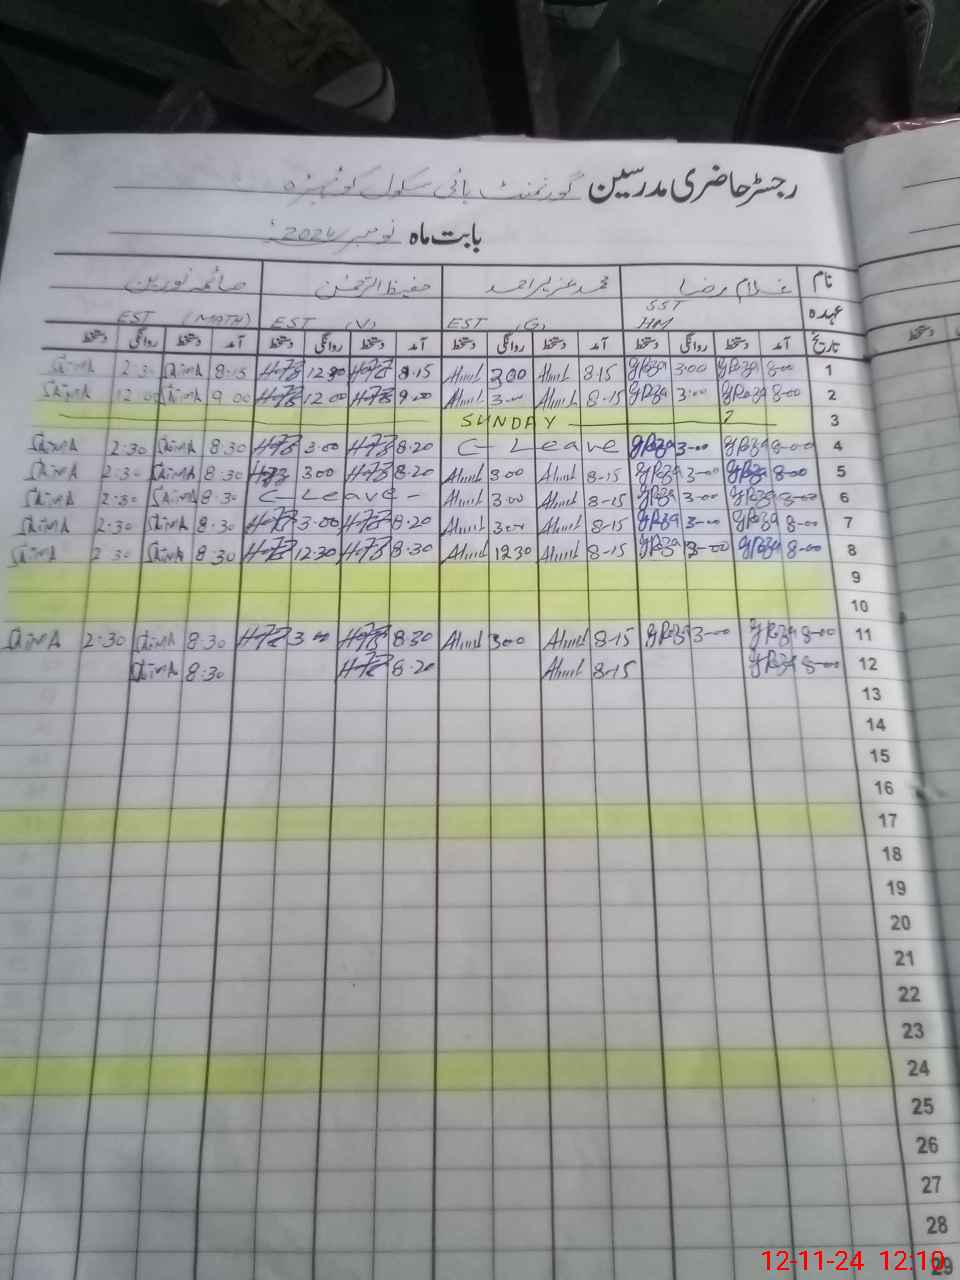 رجسٹر حاضری مدرسین گورنمنٹ ہائی سکول
بابت ماہ نومبر 2024ء
نام غلام رضا محمد عزیر احمد حفیظ الرحمٰن صائمہ نورین
عہدہ SST HM EST (G) EST (V) EST (MATH)
تاریخ آمد دستخط روانگی دستخط آمد دستخط روانگی دستخط آمد دستخط روانگی دستخط آمد دستخط روانگی دستخط
1 8-00 gRza 3-00 gRza 8-15 Ahmd 3.00 Ahmd 8.15 12.30 8.15 SaimA 2:30 SaimA
2 8-00 gRza 3-00 gRza 8-15 Ahmd 3.00 Ahmd 9.00 12.00 9.00 SaimA 12.00 SaimA
3 SUNDAY
4 8-00 gRza 3-00 gRza C-Leave 8.20 3.00 8.30 SaimA 2:30 SaimA
5 8-00 gRza 3-00 gRza 8-15 Ahmd 3.00 Ahmd 8.20 3.00 8.30 SaimA 2:30 SaimA
6 8-00 gRza 3-00 gRza 8-15 Ahmd 3.00 Ahmd C-Leave- 8.30 SaimA 2:30 SaimA
7 8-00 gRza 3-00 gRza 8-15 Ahmd 3.00 Ahmd 8.20 3.00 8.30 SaimA 2:30 SaimA
8 8-00 gRza 3-00 gRza 8-15 Ahmd 12.30 Ahmd 8.30 12.30 8.30 SaimA 2:30 SaimA
9
10
11 8-00 gRza 3-00 gRza 8-15 Ahmd 3.00 Ahmd 8.30 3.00 8:30 SaimA 2:30 SaimA
12 8-00 gRza 8-15 Ahmd 8.20 8:30 SaimA
13
14
15
16
17
18
19
20
21
22
23
24
25
26
27
28
29
12-11-24 12:10